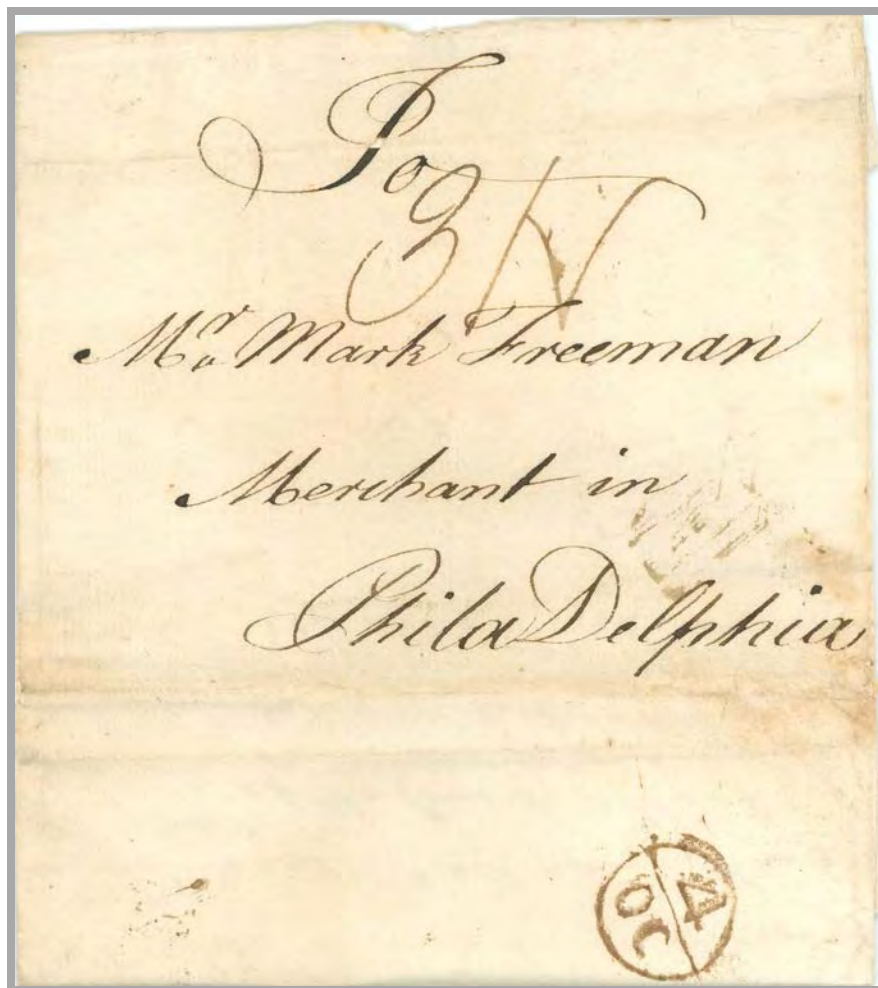 To
3 N
Mr. Mark Freeman
Merchant in
PhilaDelphia
4
OC